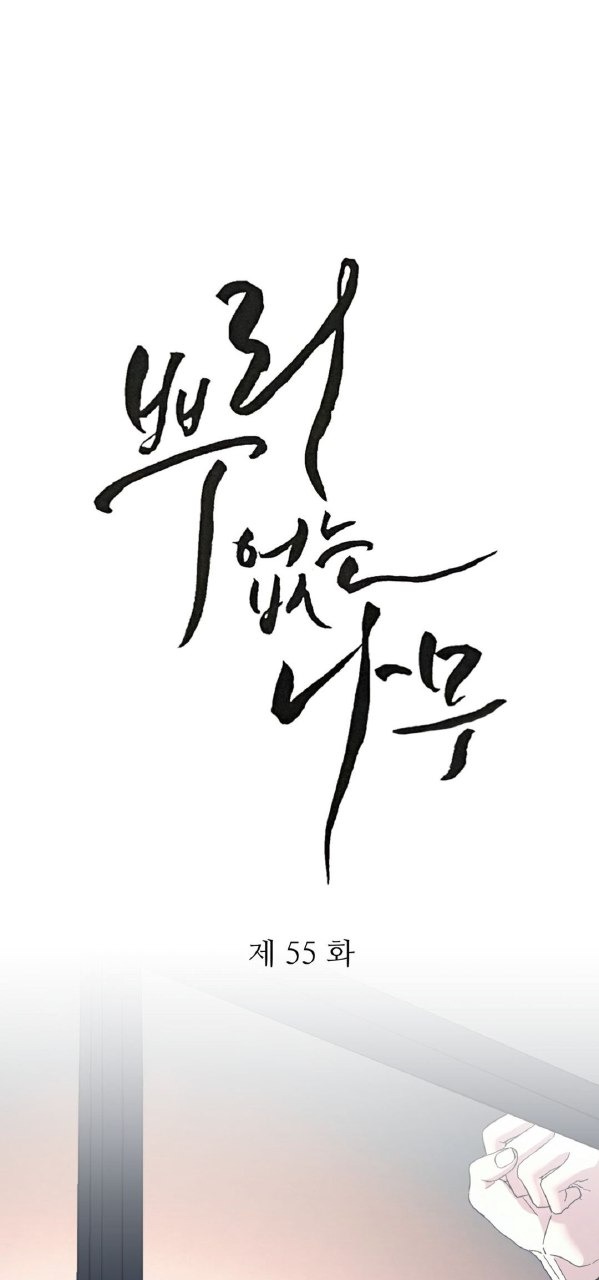 뿌리
없는
나무
제 55 화